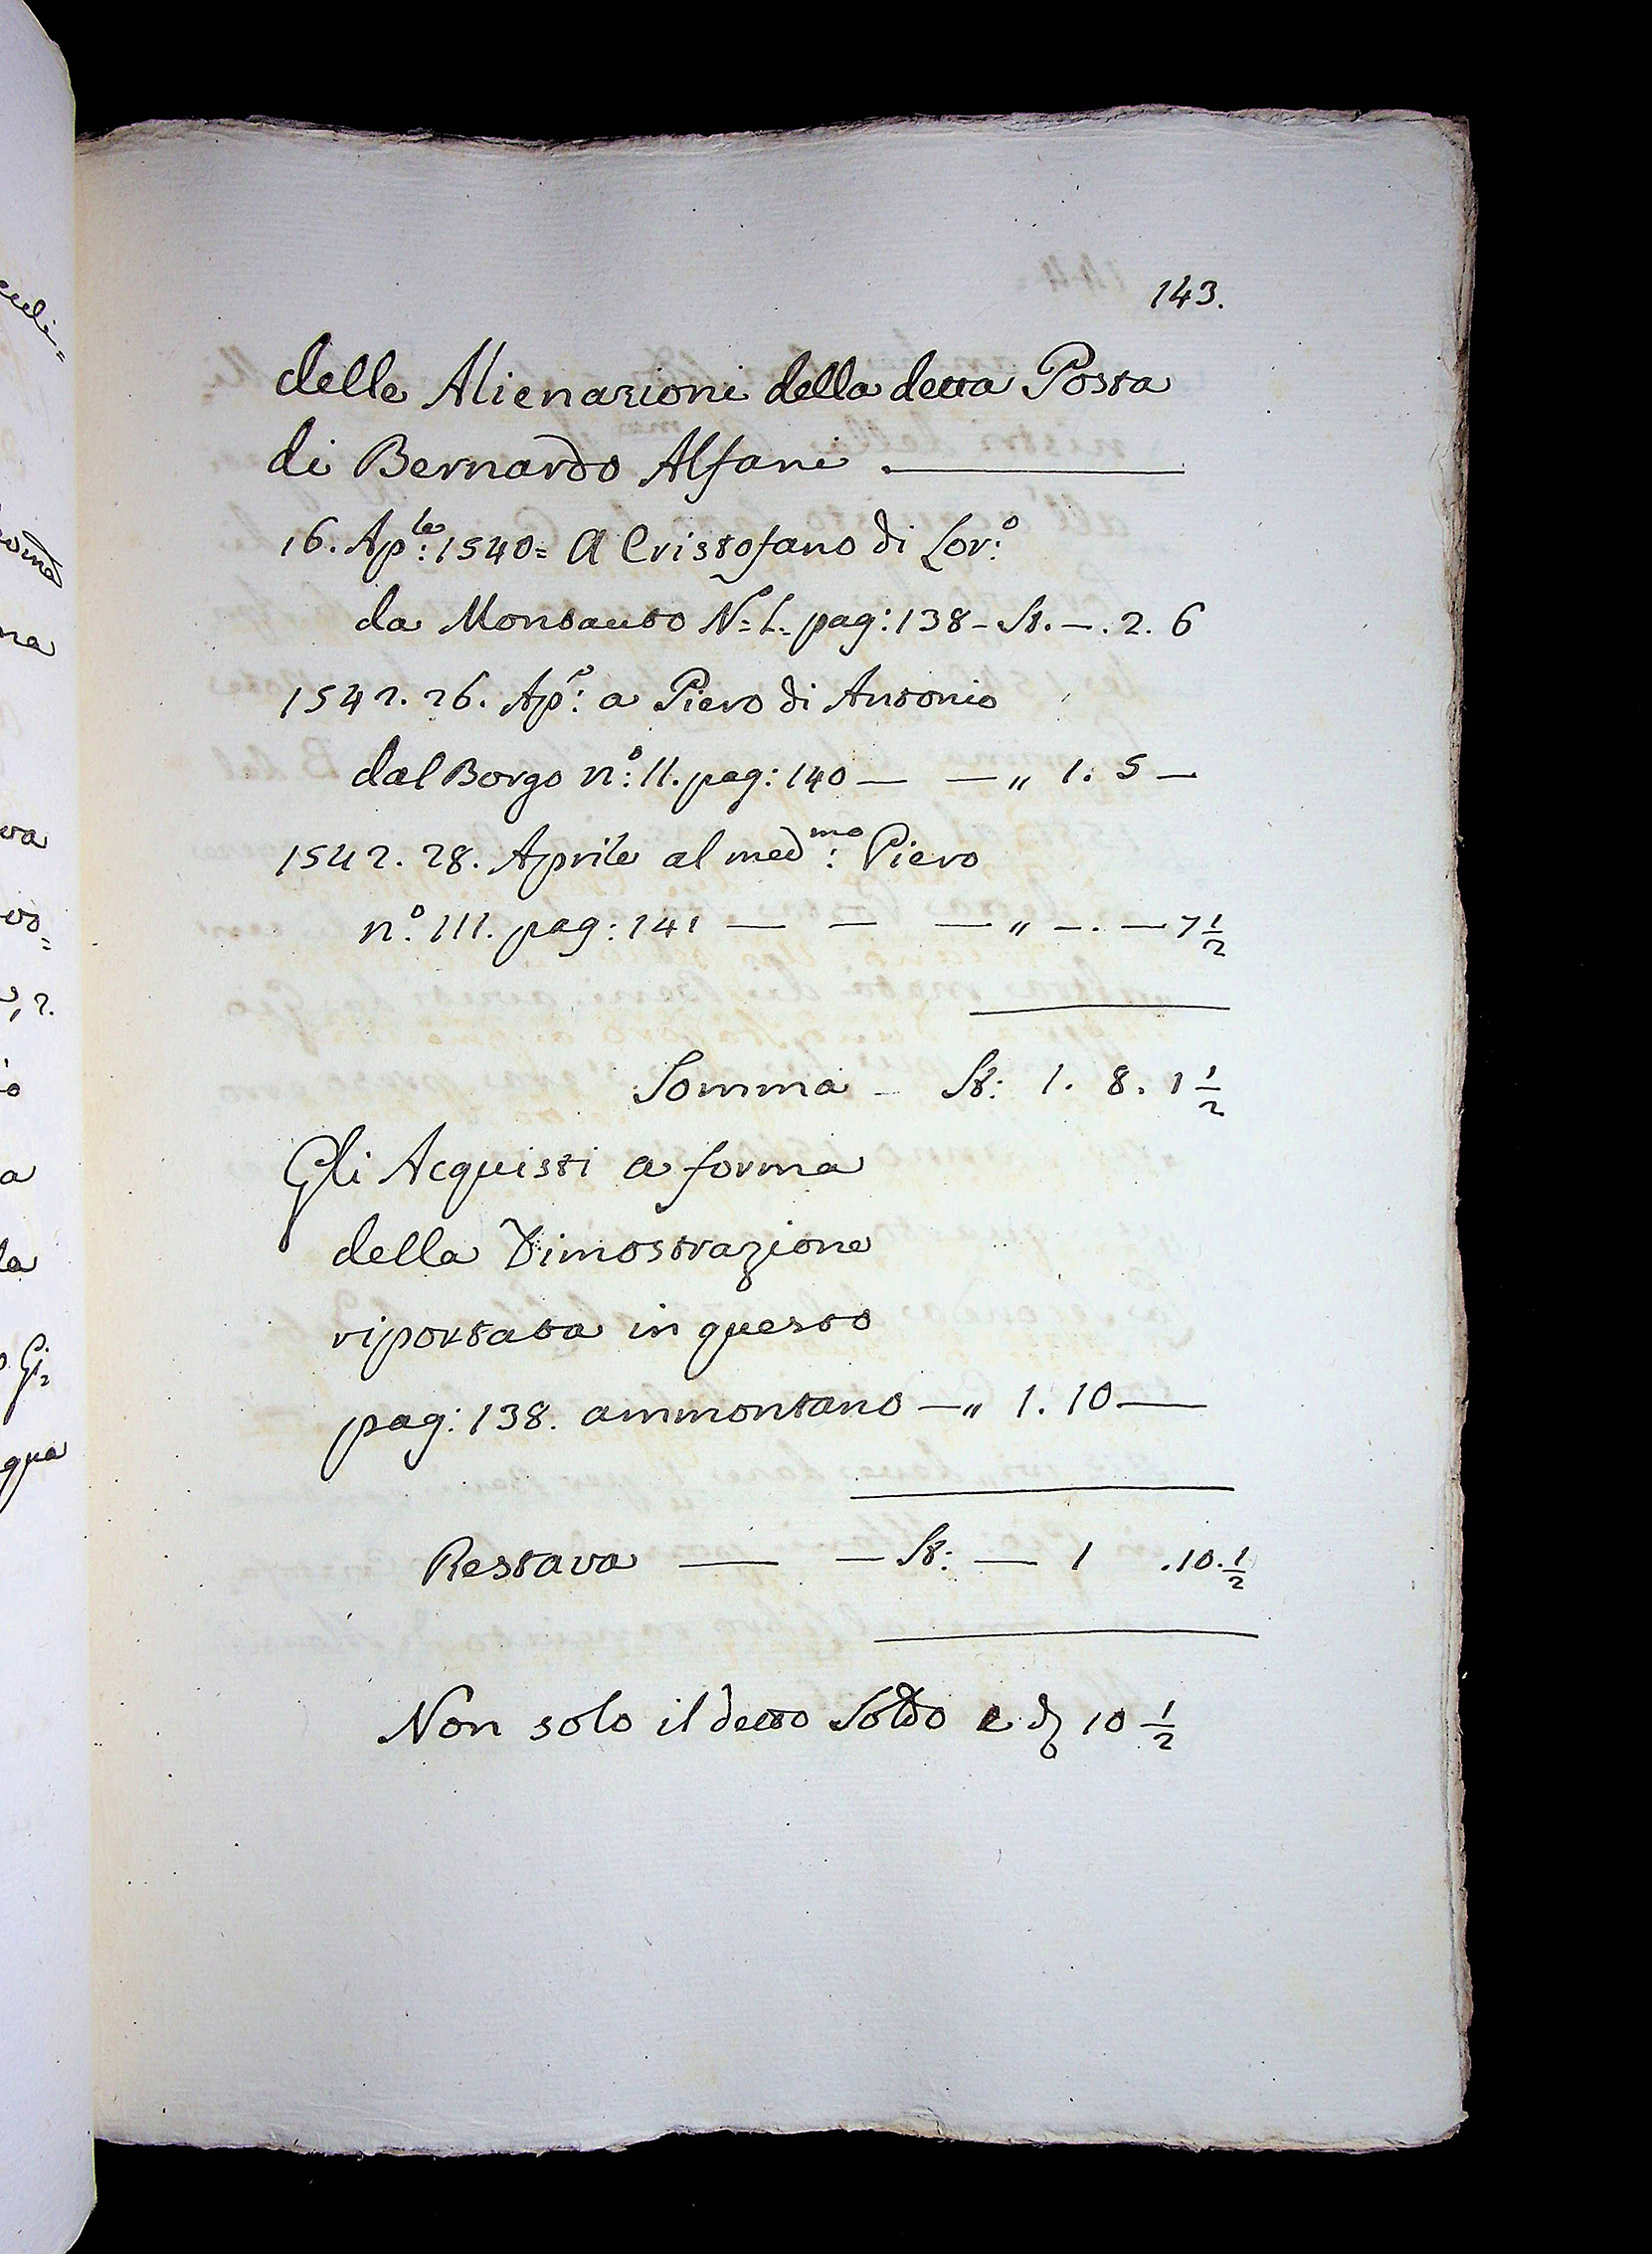 143.
delle Alienazioni della detta Posta
di Bernardo Alfani.
16. Ap:le 1540= A Cristofano di Lor:o
da Montauto N=I. pag: 138 - St. —. 2. 6
1542. 26. Ap:e a Piero di Antonio
dal Borgo n:o II. pag: 140 — — „ 1. 5 —
1542. 28. Aprile al med:mo Piero
n:o III. pag: 141 — — — „ —. — 7 1/2
Somma — St: 1. 8. 1 1/2
Gli Acquisti a forma
della Dimostrazione
riportata in questo
pag: 138. ammontano — „ 1. 10 —
Restava — — St: — 1 .10. 1/2
Non solo il detto Soldo e d 10 1/2
na
va
a
la
qua